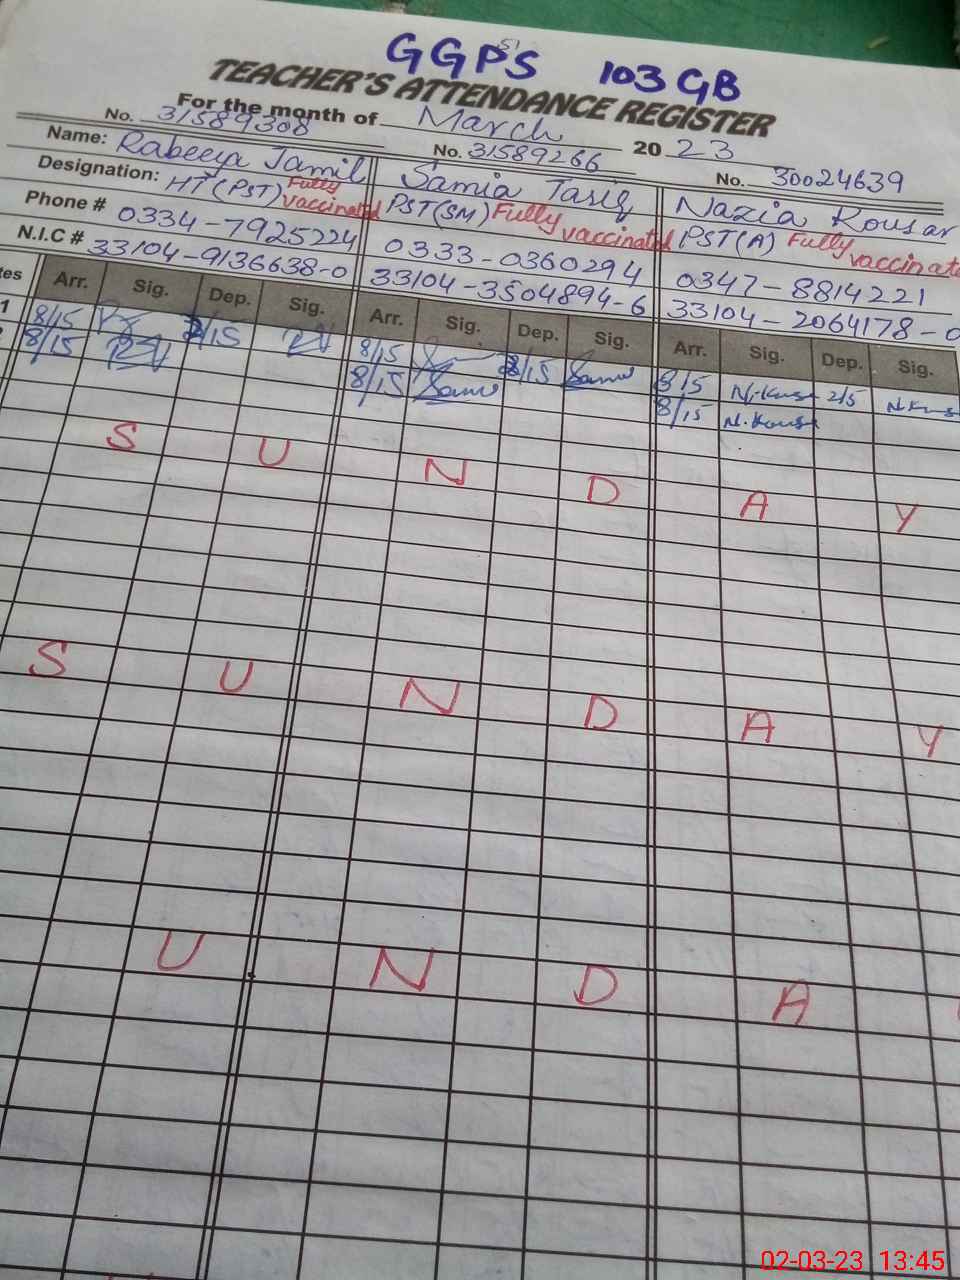 GGPS 103 GB
TEACHER'S ATTENDANCE REGISTER
For the month of March 2023
No. 31589308 No. 31589266 No. 30024639
Name: Rabeeya Jamil Samia Tariq Nazia Kousar
Designation: HT(PST) Fully vaccinated PST(SM) Fully vaccinated PST(A) Fully vaccinate
Phone # 0334-7925224 0333-0360294 0347-8814221
N.I.C # 33104-9136638-0 33104-3504894-6 33104-2064178-0
tes Arr. Sig. Dep. Sig. Arr. Sig. Dep. Sig. Arr. Sig. Dep. Sig.
1 8/15 2/15 8/15 2/15 8/5 N.Kousar 2/5
8/15 8/15 8/15 N.Kousar
S U N D A Y
S U N D A Y
U N D A
02-03-23 13:45